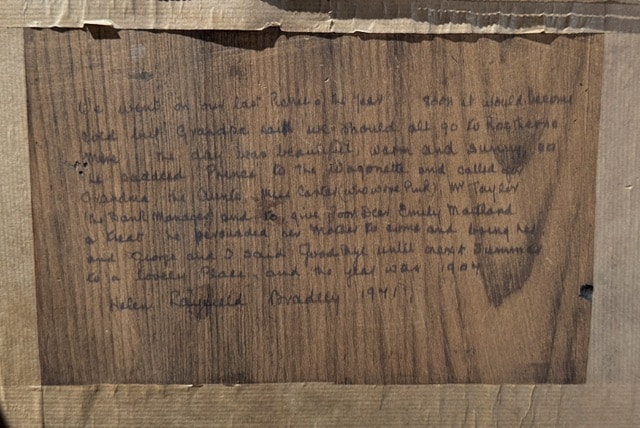 We went on our last Picnic of the year soon it would become
cold but Grandpa said we should all go to Rostherne
Mere the day was beautiful, warm and sunny, so
he saddled Prince to the Wagonette and called for
Grandma the Aunts, Miss Carter (who wore Pink), Mr Taylor
the Bank Manager and to give Poor Dear Emily Maitland
a treat he persuaded her Mother to come and bring her
and George and I said Goodbye until next Summer
to a lovely Place, and the year was 1907
Helen Layfield Bradley 1971